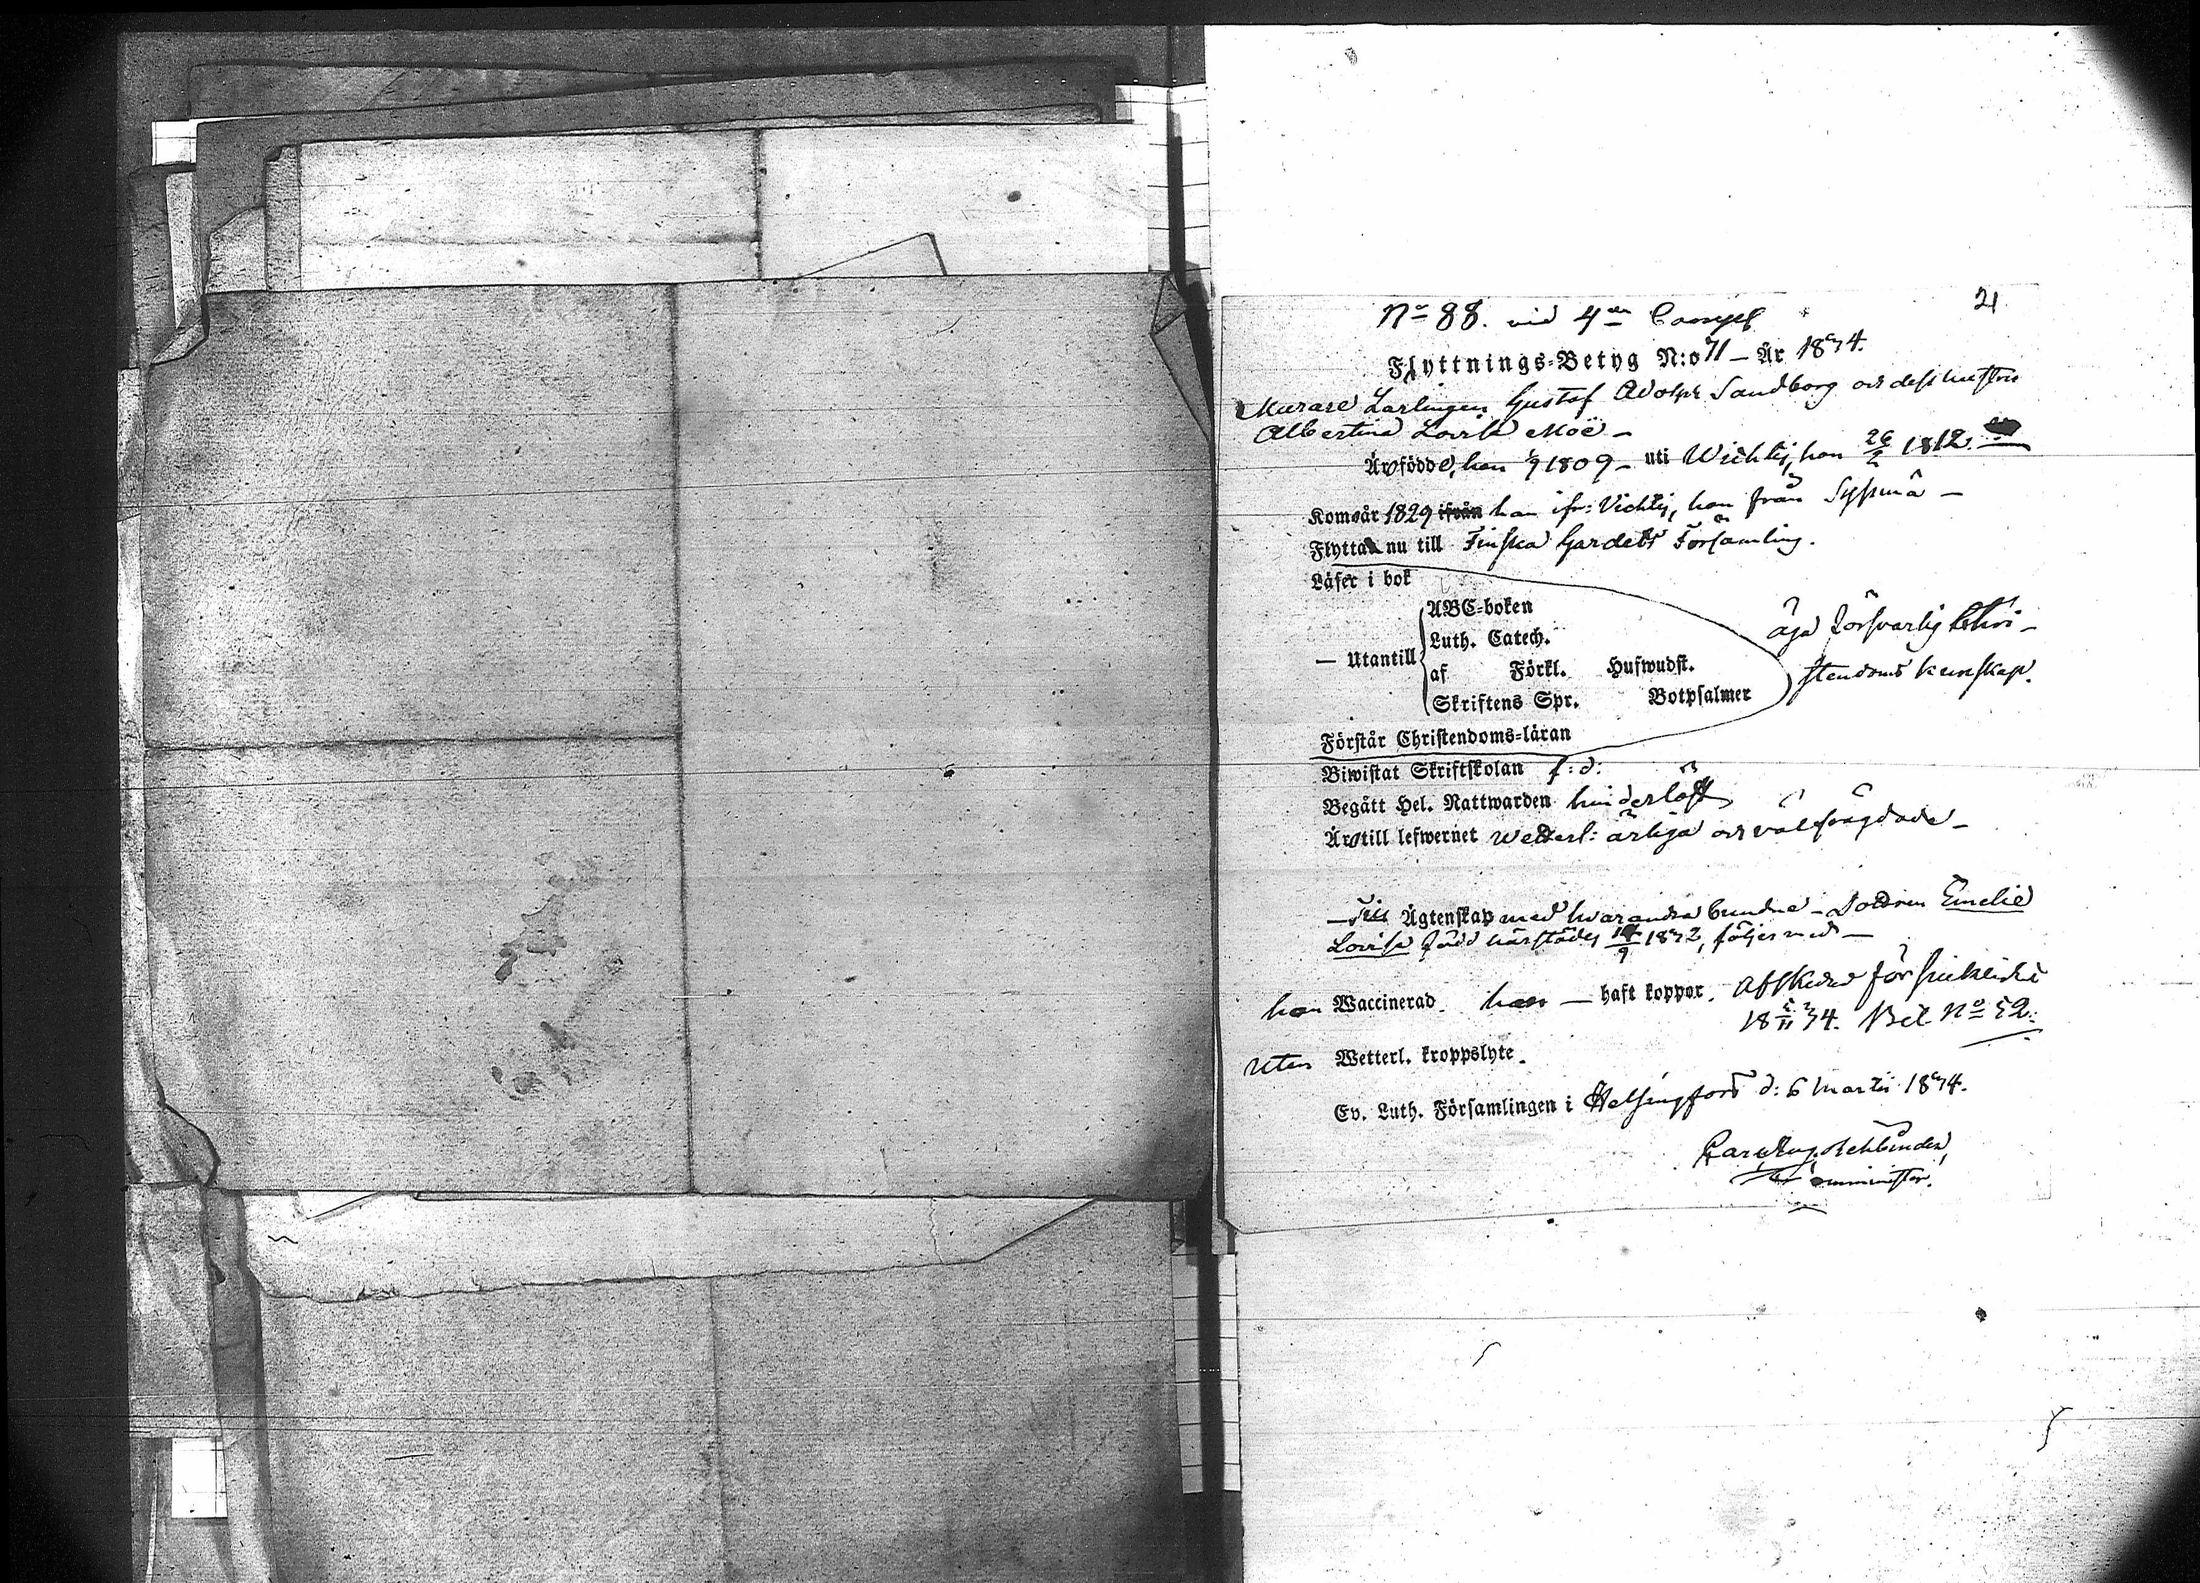 21
No 88. vid 4de Comp
Flyttnings-Betyg N:o 71 – År 1834.
Murare Lärlingen Gustaf Adolph Sandborg och dess hustru
Albertina Lovisa Moë –
Äro födde, han 1809 – uti Wichtis, hon 26/2 1812.
Kom år 1829 ifrån han ifr: Vichtis, hon från Syssmä –
Flytta nu till Finska Gardets Församling.
Läser i bok
ABC-boken
Luth. Catech.
äga försvarlig Chri-
— Utantill
af Förkl. Hufwudst.
stendoms kunskap.
Skriftens Spr. Botpsalmer
Förstår Christendoms-läran
Biwistat Skriftskolan f: d:
Begått Hel. Nattwarden hinderlöst
Äro till lefwernet Wetterl: ärliga och välfrägdade –
— Till Ägtenskap med hvarandra bundne – Dottren Emelie
Lovisa född härstädes /9 1832, följer med —
hon Waccinerad. han — haft koppor. Afskedad för
18 34. Bil No 52.
utan Wetterl. kroppslyte.
Ev. Luth. Församlingen i Helsingfors d: 6 Martii 1834.
Carl Aug. Rehbinder,
Comminister.